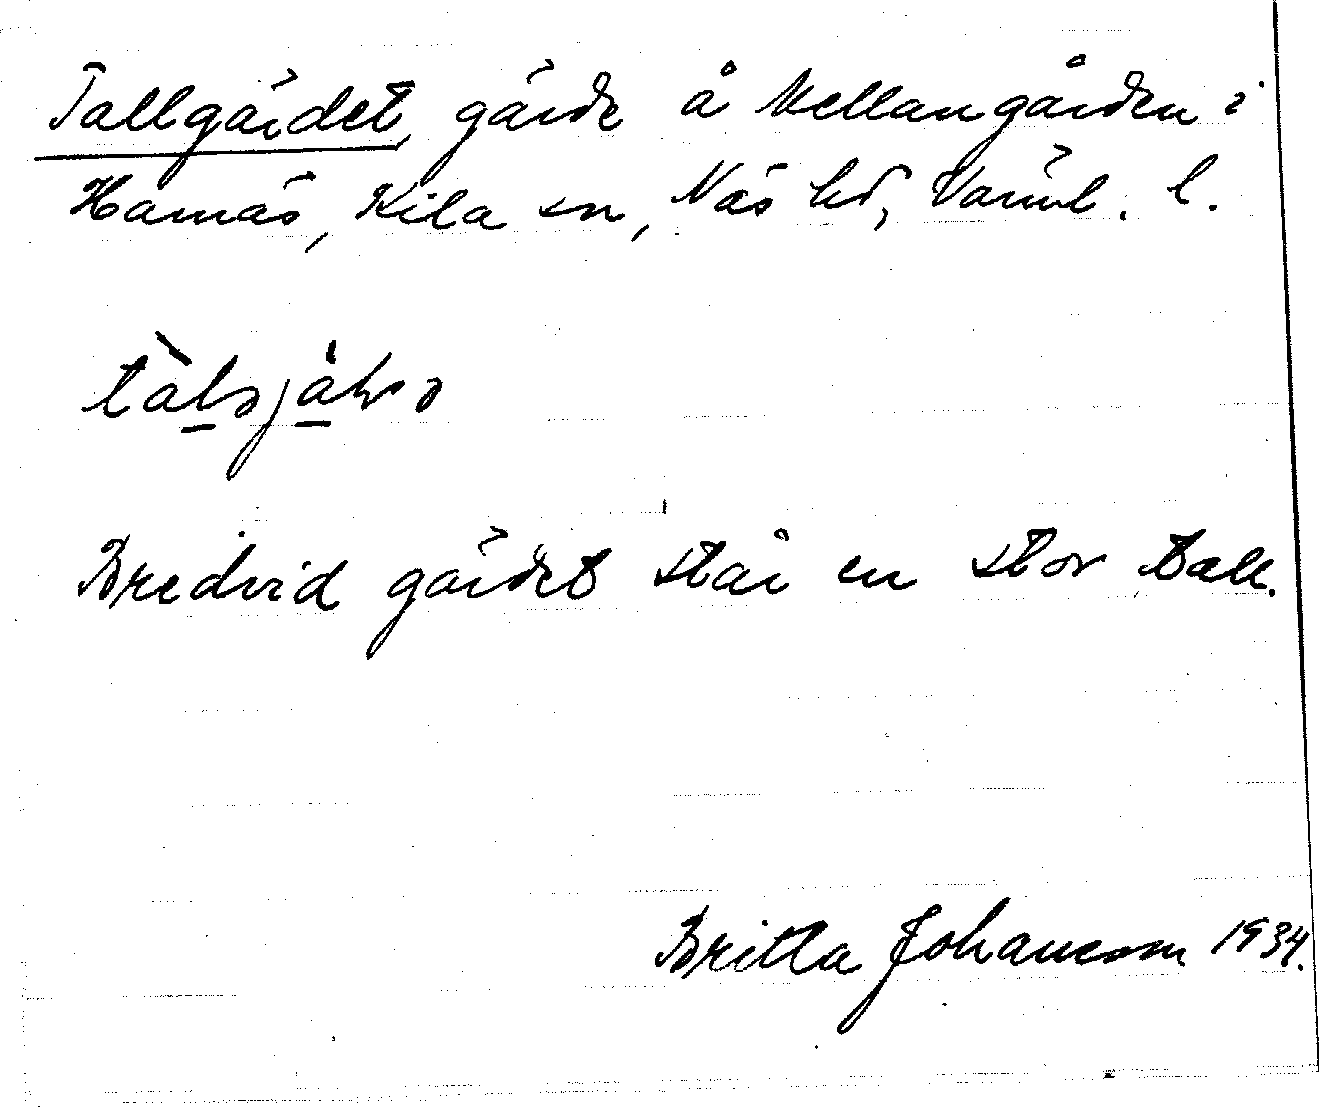 Tallgärdet, gärde å Mellangården i
Harnäs, Kila sn, Näs hd, Värml. l.
Bredvid gärdet står en stor tall.
Britta Johansson 1934.